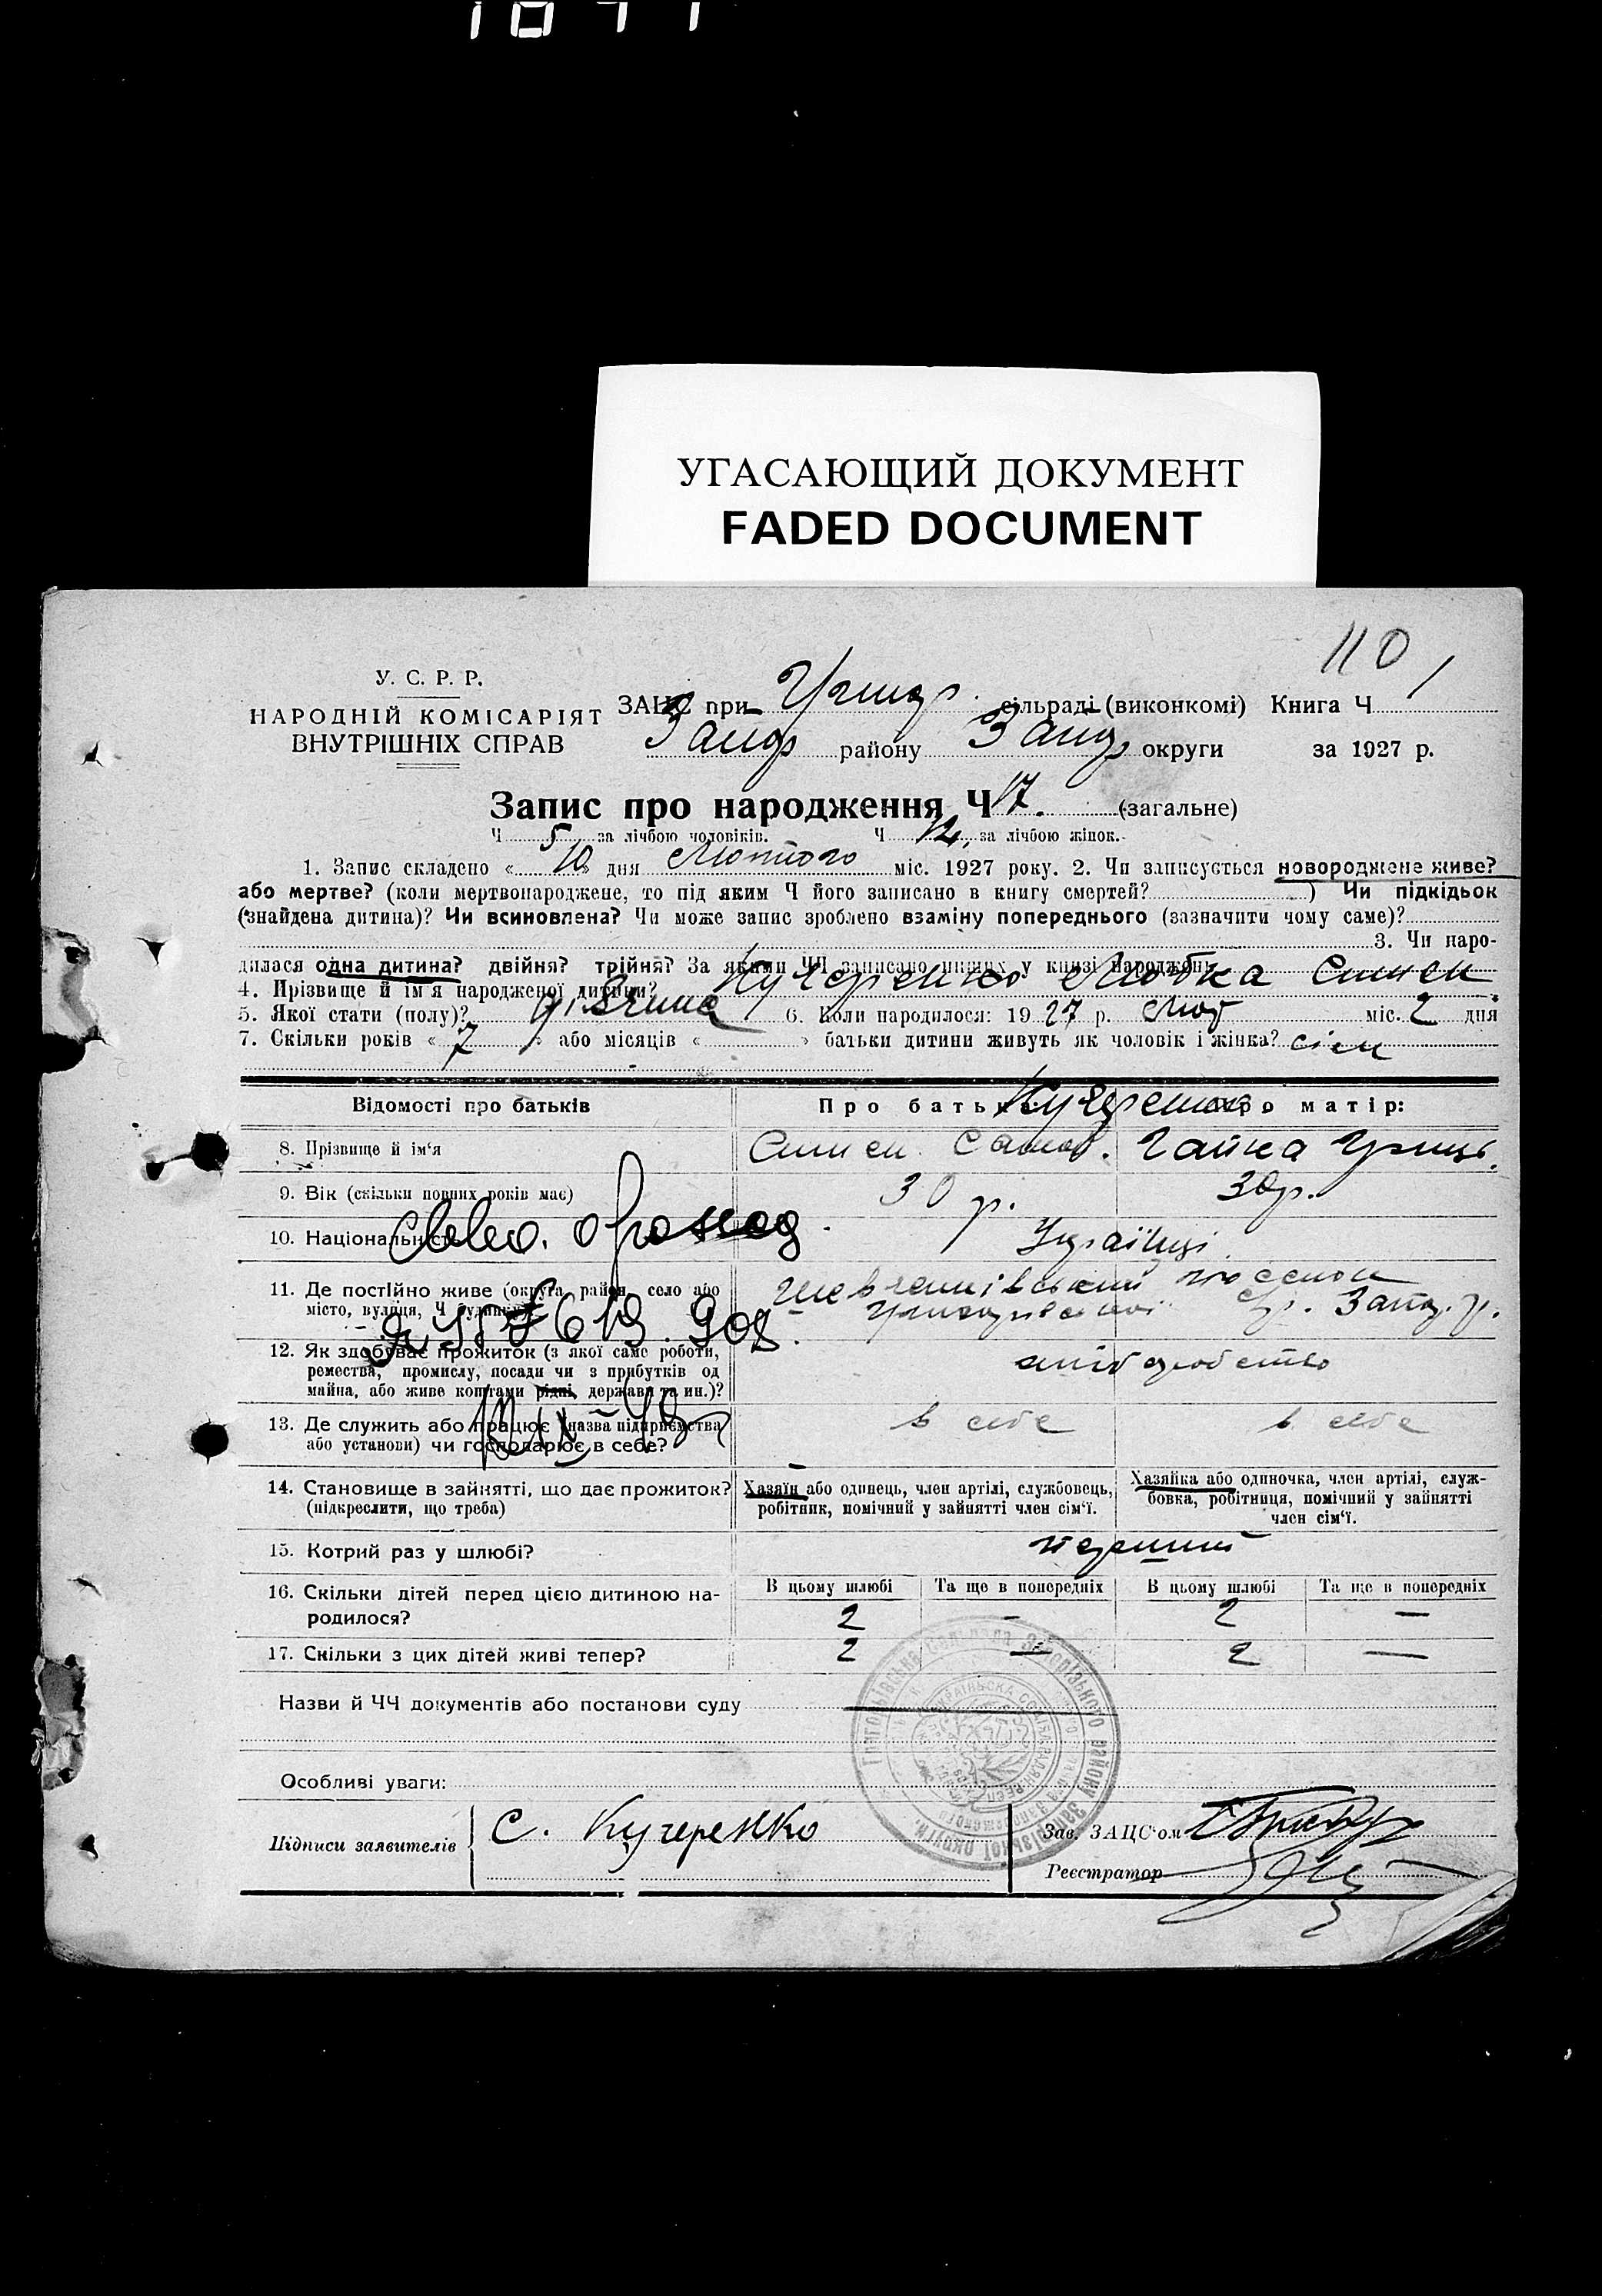 УГАСАЮЩИЙ ДОКУМЕНТ
FADED DOCUMENT
110
У. С. Р. Р.
НАРОДНІЙ КОМІСАРІЯТ
ВНУТРІШНІХ СПРАВ
ЗАЦС при сільраді (виконкомі) Книга Ч
району округи за 1927 р.
Запис про народження Ч 17. (загальне)
Ч 5 за лічбою чоловіків. Ч 12, за лічбою жінок.
1. Запис складено « 10 » дня Лютого міс. 1927 року. 2. Чи записується новороджене живе?
або мертве? (коли мертвонароджене, то під яким Ч його записано в книгу смертей? ) Чи підкідьок
(знайдена дитина)? Чи всиновлена? Чи може запис зроблено взаміну попереднього (зазначити чому саме)?
3. Чи наро-
дилася одна дитина? двійня? трійня? За якими ЧЧ записано инших у книзі народжень
4. Прізвище й ім'я народженої дитини? Кучеренко Любка Симен
5. Якої стати (полу)? дівчина 6. Коли народилося: 1927 р. Лют міс. 2 дня
7. Скільки років « 7 » або місяців « » батьки дитини живуть як чоловік і жінка? сім
Відомості про батьків Про батька: Про матір:
Кучеренки
8. Прізвище й ім'я Симен Самов. Гапка Гриць.
9. Вік (скільки повних років має) 30 р. 30р.
10. Національність Українці
11. Де постійно живе (округа, район, село або
місто, вулиця, Ч будинку) Шевченківський Зап. р.
12. Як здобуває прожиток (з якої саме роботи,
ремества, промислу, посади чи з прибутків од
майна, або живе коштами рідні, держави та ин.)? хліборобство
13. Де служить або працює (назва підприємства
або установи) чи господарює в себе? в себе в себе
14. Становище в зайнятті, що дає прожиток?
(підкреслити, що треба)
Хазяїн або одинець, член артілі, службовець,
робітник, помічний у зайнятті член сім'ї.
Хазяйка або одиночка, член артілі, служ-
бовка, робітниця, помічний у зайнятті
член сім'ї.
15. Котрий раз у шлюбі? перший
16. Скільки дітей перед цією дитиною на-
родилося?
В цьому шлюбі Та ще в попередніх В цьому шлюбі Та ще в попередніх
2 — 2 —
17. Скільки з цих дітей живі тепер? 2 — 2 —
Назви й ЧЧ документів або постанови суду
Особливі уваги:
Підписи заявителів С. Кучеренко
Зав. ЗАЦС'ом
Реєстратор